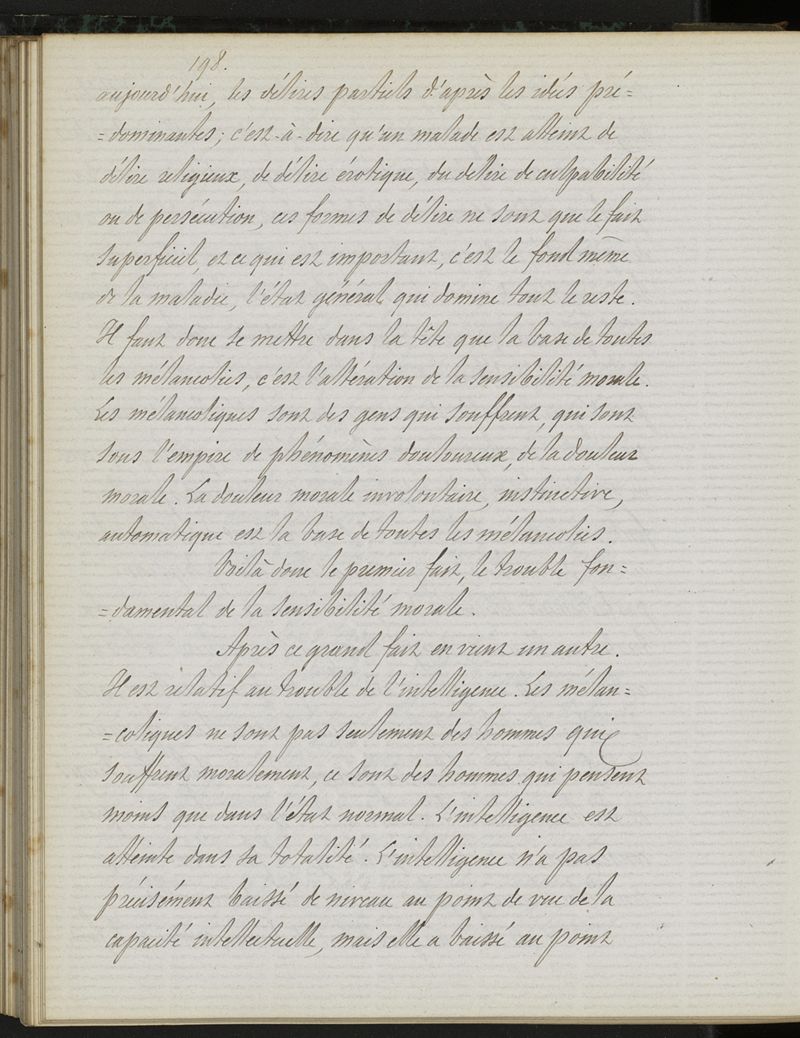 198.
aujourd'hui, les délires partiels d'après les idées pré=
=dominantes; c'est-à-dire qu'un malade est atteint de
délire religieux, de délire érotique, du délire de culpabilité
ou de persécution, ces formes de délire ne sont que le fait
superficiel, et ce qui est important, c'est le fond même
de la maladie, l'état général qui domine tout le reste.
Il faut donc se mettre dans la tête que la base de toutes
les mélancolies, c'est l'altération de la sensibilité morale.
Les mélancoliques sont des gens qui souffrent, qui sont
sous l'empire de phénomènes douloureux, de la douleur
morale. La douleur morale involontaire, instinctive,
automatique est la base de toutes les mélancolies.
Voilà donc le premier fait, le trouble fon=
=damental de la sensibilité morale.
Après ce grand fait en vient un autre.
Il est relatif au trouble de l'intelligence. Les mélan=
=coliques ne sont pas seulement des hommes qui
souffrent moralement, ce sont des hommes qui pensent
moins que dans l'état normal. L'intelligence est
atteinte dans sa totalité. L'intelligence n'a pas
précisément baissé de niveau au point de vue de la
capacité intellectuelle, mais elle a baissé au point